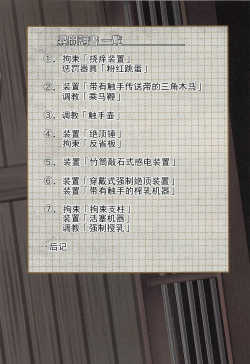 ①．拘束「挠痒装置」
惩罚器具「粉红跳蛋」
②．装置「带有触手传送带的三角木马」
调教「乘马鞭」
③．调教「触手壶」
④．装置「绝顶锤」
拘束「反省板」
⑤．装置「竹筒敲石式感电装置」
⑥．装置「穿戴式强制绝顶装置」
装置「带有触手的榨乳机器」
⑦．拘束「拘束支柱」
装置「活塞机器」
调教「强制授乳」
后记